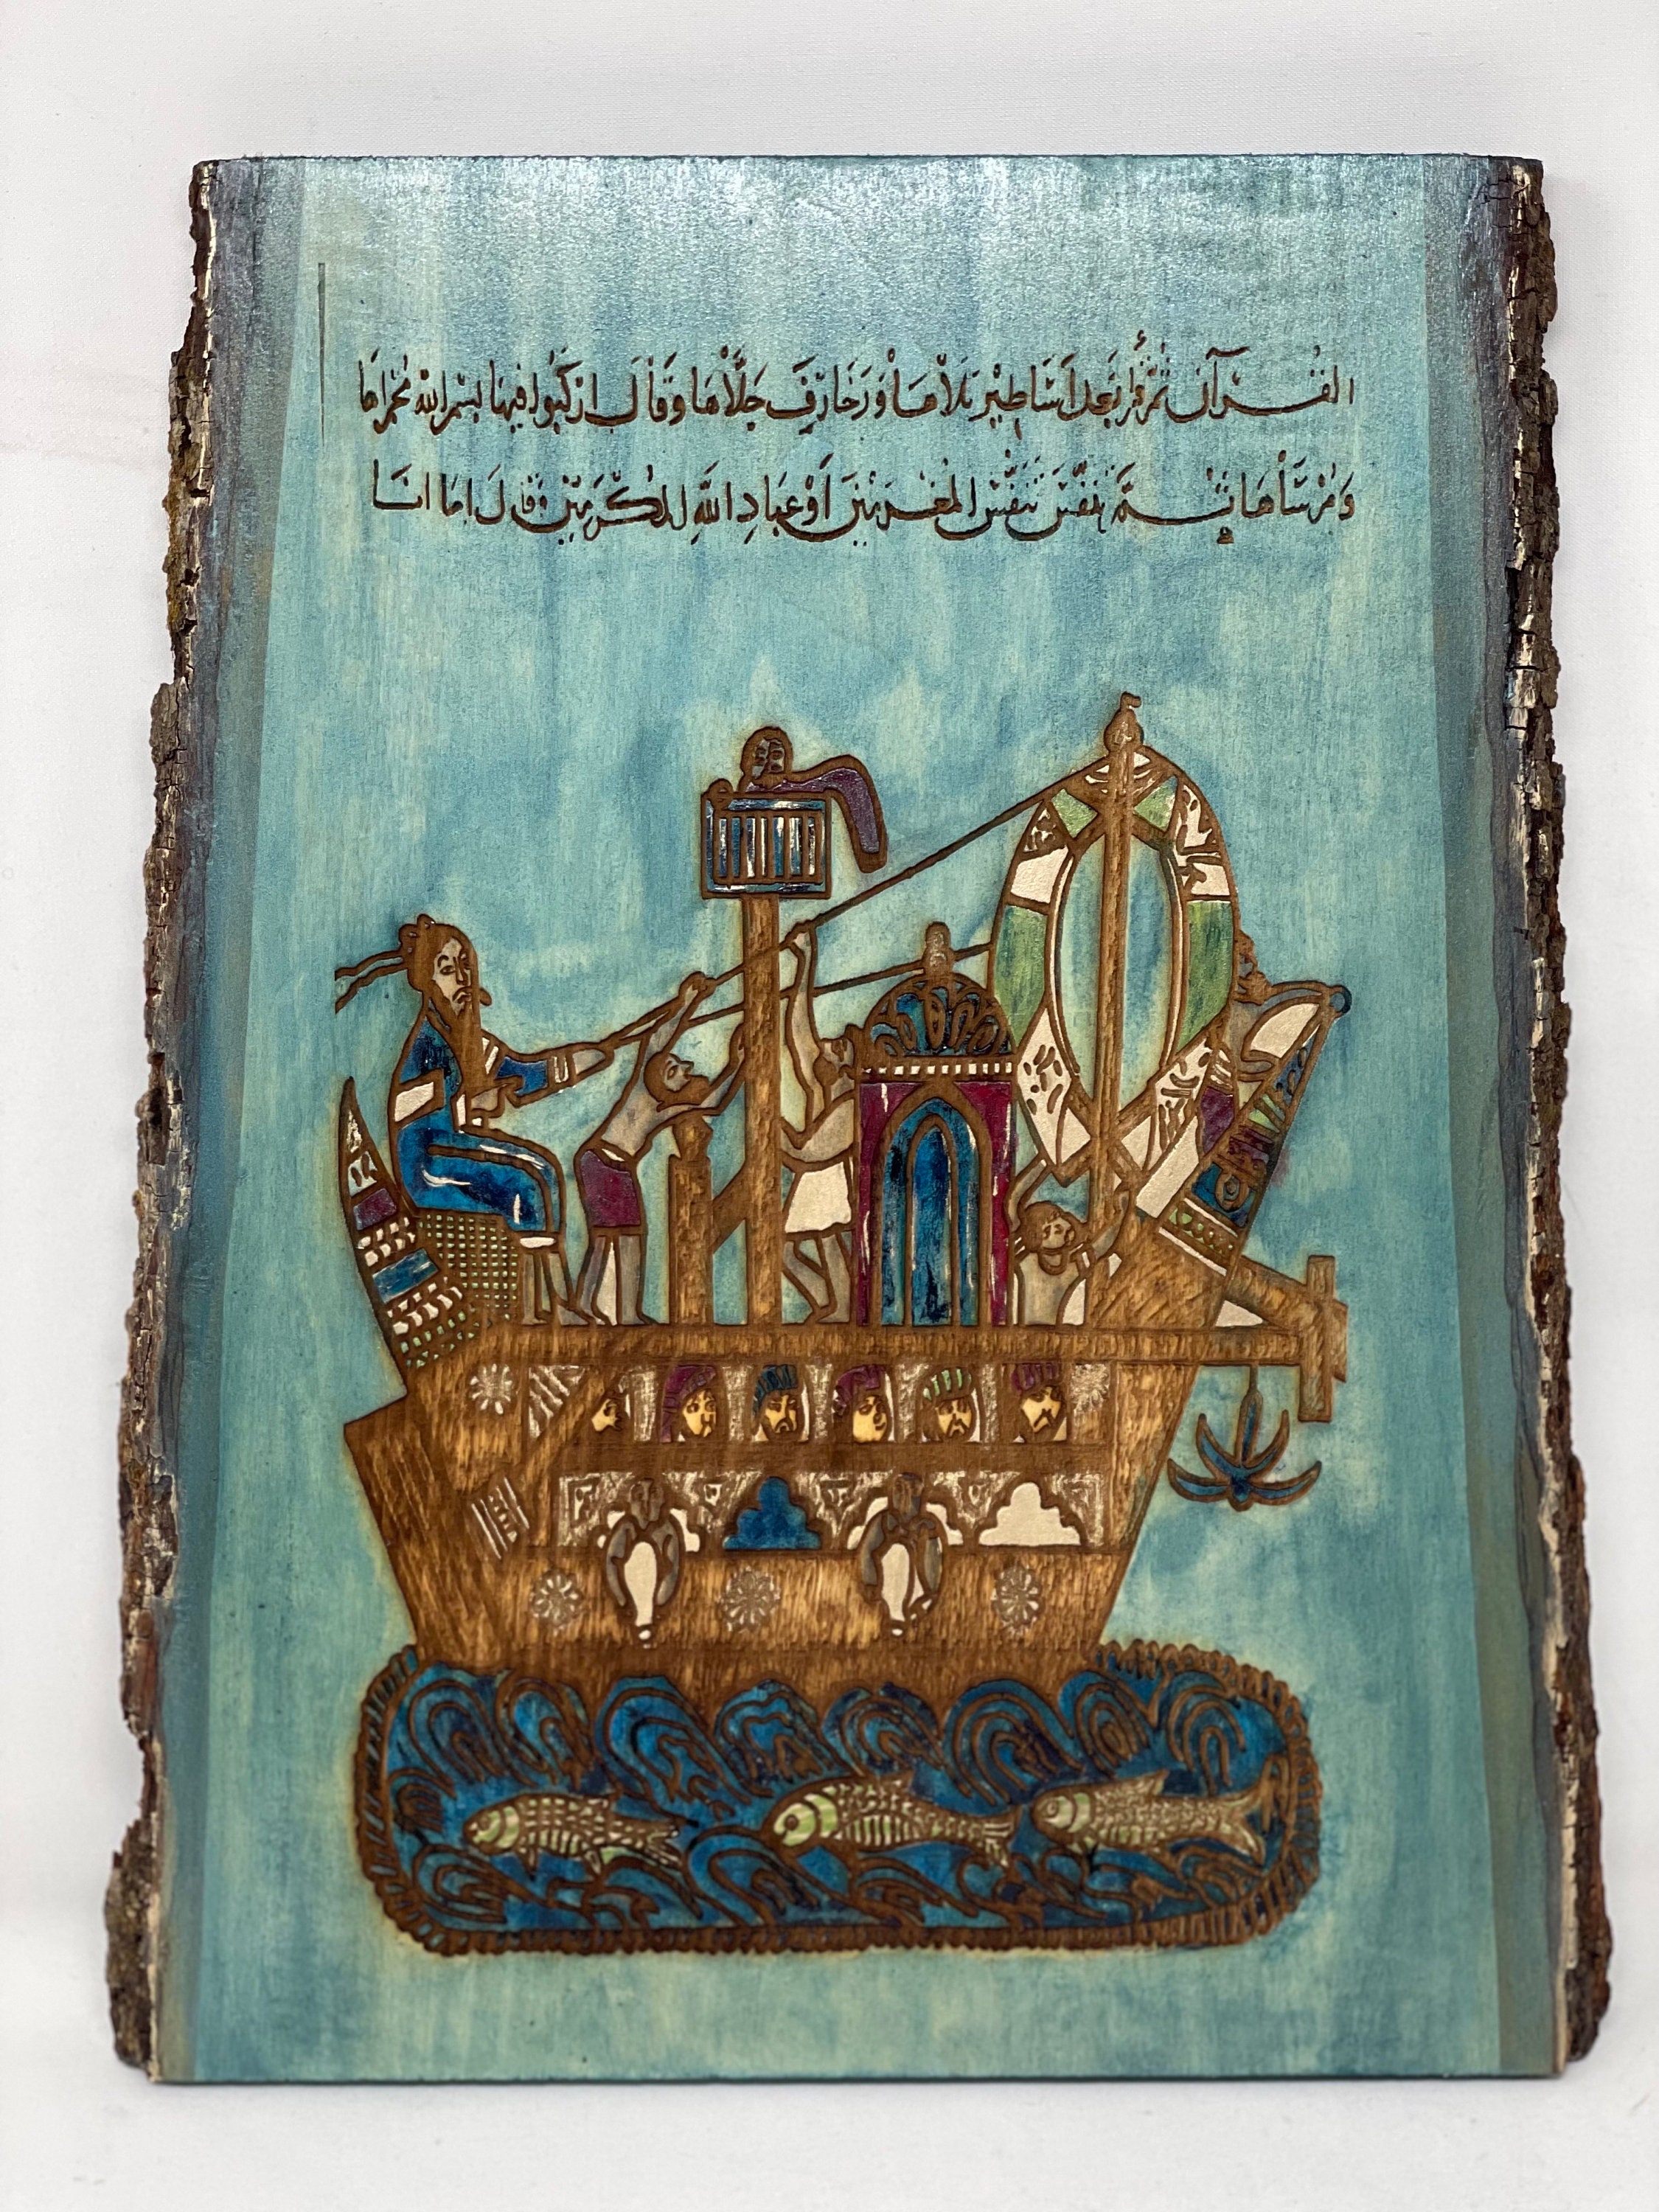 القُرآن ثُمَّ قرأ بَعد اَسَاطِيْرَ تَلاْهَا وَزَخَارِفَ جَلَّاْهَا وَقَاْلَ ارْكَبُوا فِيهَا بِسْمِ اللهِ مُجْرَاهَا
وَمُرْسَاْهَا ثُمَّ تَنَفَّسَ تَنَفُّسَ المُغْرَمِيْنَ اَوْ عِبَادِ اللَّهِ المُكْرَمِيْنَ وَقَالَ اما انَا